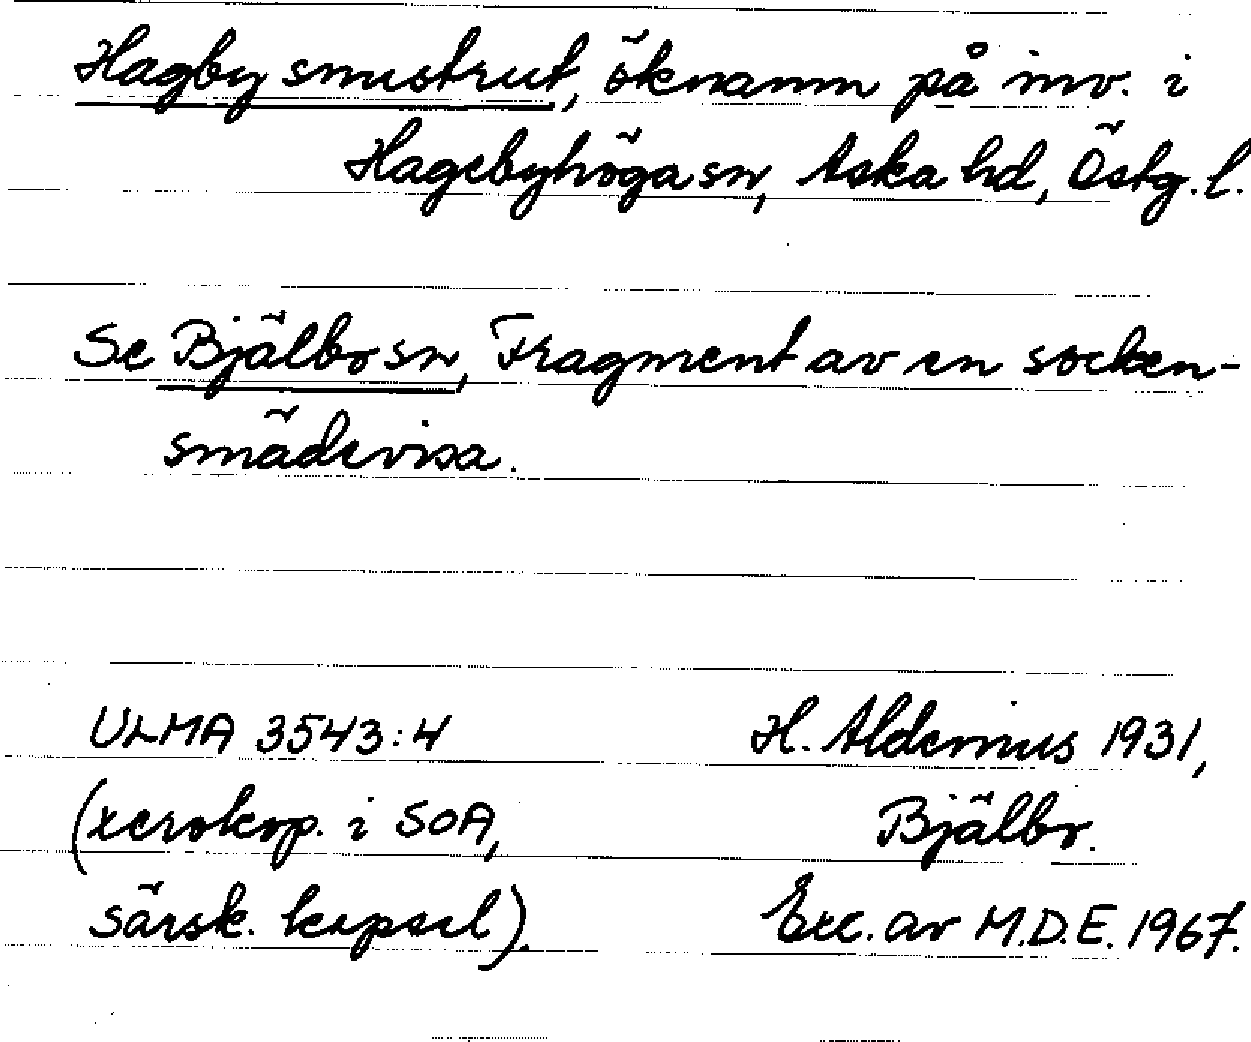 Hagby smustrut, öknamn på inv. i
Hagebyhöga sn, Aska hd, Östg. l.
Se Bjälbo sn, Fragment av en socken-
smädevisa.
ULMA 3543:4
H. Aldernius 1931,
(xerokop. i SOA,
Bjälbo.
särsk. kapsel).
Exc. av M.D.E. 1967.